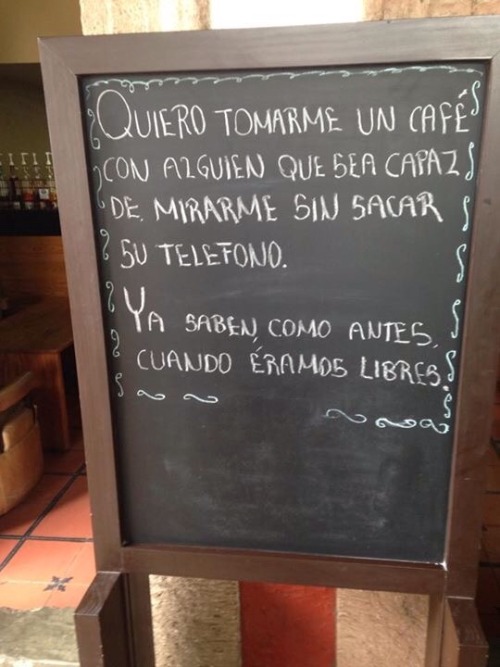 QUIERO TOMARME UN CAFÉ
CON ALGUIEN QUE SEA CAPAZ
DE MIRARME SIN SACAR
SU TELEFONO.
YA SABEN, COMO ANTES,
CUANDO ÉRAMOS LIBRES.